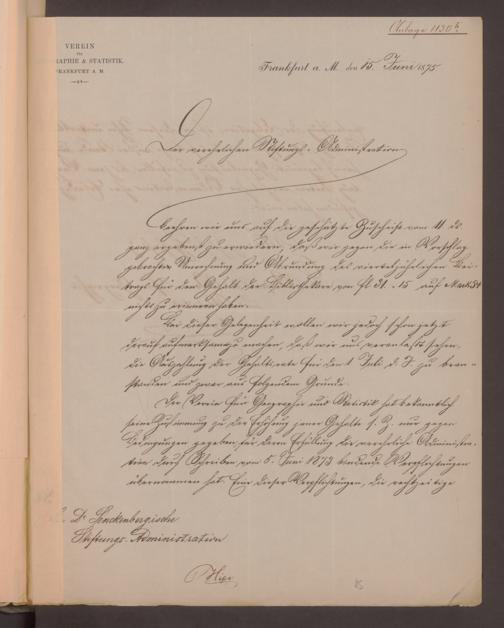 Anlage 1130 b.
VEREIN
für
RAPHIE & STATISTIK.
FRANKFURT A. M.
Frankfurt a. M. den 15. Juni 1875
Der verehrlichen Stiftungs-Administration
beehren wir uns auf die geschätzte Zuschrift vom 11. ds.
ganz ergebenst zu erwiedern, daß wir gegen die in Vorschlag
gebrachte Umrechnung und Abrundung des vierteljährlichen Bei-
trags für den Gehalt des Bibliothekars von fl. 31. 15 auf Mark 54
nichts zu erinnern haben.
Bei dieser Gelegenheit wollen wir jedoch schon jetzt
darauf aufmerksam machen, daß wir uns veranlaßt sehen,
die Auszahlung der Gehaltsrate für den 1. Juli d. J. zu bean-
standen und zwar aus folgendem Grunde.
Der Verein für Geographie und Statistik hat bekanntlich
seine Zustimmung zu der Erhöhung jenes Gehalts s. Z. nur gegen
Bedingungen gegeben für deren Erfüllung die verehrliche Administra-
tion durch Schreiben vom 5. Juni 1873 bindende Verpflichtungen
übernommen hat. Eine dieser Verpflichtungen, die rechtzeitige
Dr. Senckenbergische
Stiftungs-Administration
Hier.